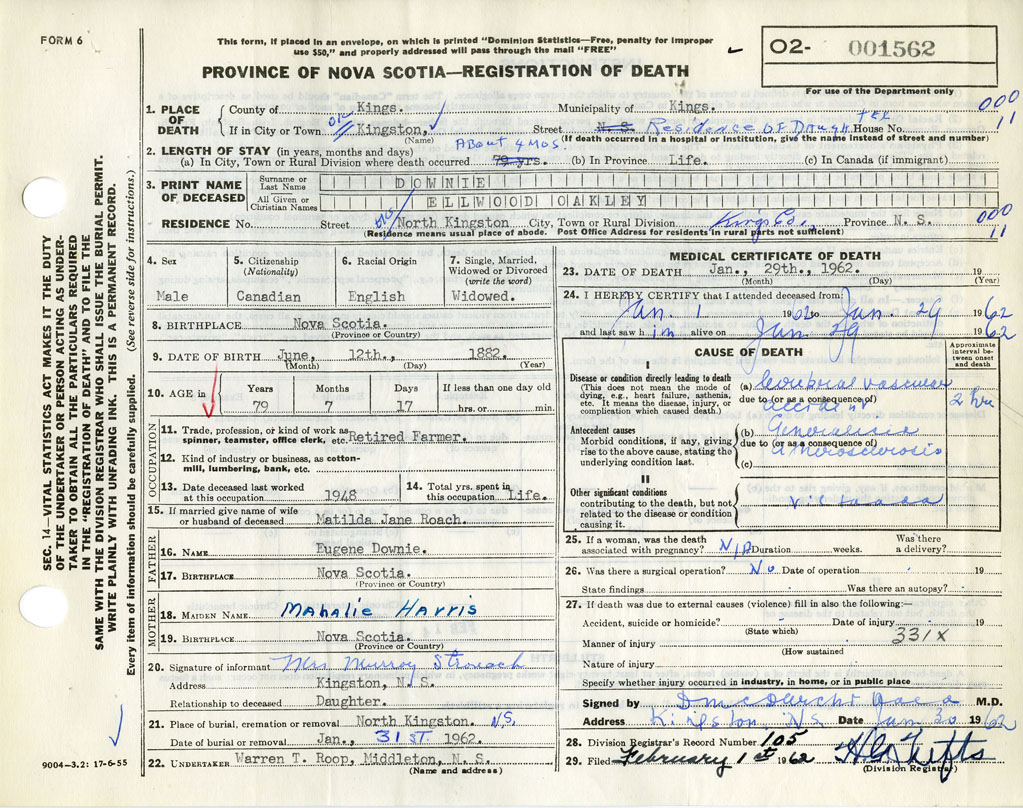 FORM 6
This form, if placed in an envelope, on which is printed "Dominion Statistics—Free, penalty for improper
use $50," and properly addressed will pass through the mail "FREE"
PROVINCE OF NOVA SCOTIA—REGISTRATION OF DEATH
O2- 001562
For use of the Department only
SEC. 14—VITAL STATISTICS ACT MAKES IT THE DUTY
OF THE UNDERTAKER OR PERSON ACTING AS UNDER-
TAKER TO OBTAIN ALL THE PARTICULARS REQUIRED
IN THE "REGISTRATION OF DEATH" AND TO FILE THE
SAME WITH THE DIVISION REGISTRAR WHO SHALL ISSUE THE BURIAL PERMIT.
WRITE PLAINLY WITH UNFADING INK. THIS IS A PERMANENT RECORD.
Every item of information should be carefully supplied. (See reverse side for instructions.)
1. PLACE OF DEATH
County of Kings. Municipality of Kings. 000
If in City or Town Kingston, Street N. S. Residence of Daughter House No. 11
(Name) (If death occurred in a hospital or institution, give the name instead of street and number)
2. LENGTH OF STAY (in years, months and days) About 4 mos.
(a) In City, Town or Rural Division where death occurred 79 yrs. (b) In Province Life. (c) In Canada (if immigrant)
3. PRINT NAME OF DECEASED
Surname or Last Name DOWNIE
All Given or Christian Names ELLWOOD OAKLEY
RESIDENCE No. Street North Kingston City, Town or Rural Division Kings Co. Province N. S. 000
(Residence means usual place of abode. Post Office Address for residents in rural parts not sufficient) 11
4. Sex
Male
5. Citizenship
(Nationality)
Canadian
6. Racial Origin
English
7. Single, Married,
Widowed or Divorced
(write the word)
Widowed.
8. BIRTHPLACE Nova Scotia.
(Province or Country)
9. DATE OF BIRTH June, 12th., 1882.
(Month) (Day) (Year)
10. AGE in
Years Months Days If less than one day old
79 7 17 hrs. or min.
OCCUPATION
11. Trade, profession, or kind of work as
spinner, teamster, office clerk, etc. Retired Farmer.
12. Kind of industry or business, as cotton-
mill, lumbering, bank, etc.
13. Date deceased last worked
at this occupation 1948
14. Total yrs. spent in
this occupation Life.
15. If married give name of wife
or husband of deceased Matilda Jane Roach.
FATHER
16. NAME Eugene Downie.
17. BIRTHPLACE Nova Scotia.
(Province or Country)
MOTHER
18. MAIDEN NAME Mahalie Harris
19. BIRTHPLACE Nova Scotia.
(Province or Country)
20. Signature of informant Mrs Murray Stronach
Address Kingston, N. S.
Relationship to deceased Daughter.
21. Place of burial, cremation or removal North Kingston. N.S.
Date of burial or removal Jan., 31st. 1962.
22. UNDERTAKER Warren T. Roop, Middleton, N. S.
(Name and address)
9004—3.2: 17-6-55
MEDICAL CERTIFICATE OF DEATH
23. DATE OF DEATH Jan., 29th., 1962. 19
(Month) (Day) (Year)
24. I HEREBY CERTIFY that I attended deceased from:
Jan. 1 1962 to Jan. 29 1962
and last saw him alive on Jan 29 1962
CAUSE OF DEATH
Approximate
interval be-
tween onset
and death
I
Disease or condition directly leading to death
(This does not mean the mode of
dying, e.g., heart failure, asthenia,
etc. It means the disease, injury, or
complication which caused death.)
(a) Cerebral vascular
due to (or as a consequence of)
accident 2 hrs
Antecedent causes
Morbid conditions, if any, giving
rise to the above cause, stating the
underlying condition last.
(b) Generalised
due to (or as a consequence of)
atherosclerosis
(c)
II
Other significant conditions
contributing to the death, but not
related to the disease or condition
causing it.
25. If a woman, was the death
associated with pregnancy? N/A Duration weeks. Was there
a delivery?
26. Was there a surgical operation? No Date of operation 19
State findings Was there an autopsy?
27. If death was due to external causes (violence) fill in also the following:—
Accident, suicide or homicide? Date of injury 19
(State which)
331X
Manner of injury
(How sustained
Nature of injury
Specify whether injury occurred in industry, in home, or in public place
Signed by M.D.
Address Kingston NS Date Jan 30 1962
28. Division Registrar's Record Number 105
29. Filed February 1st 1962
(Division Registrar)